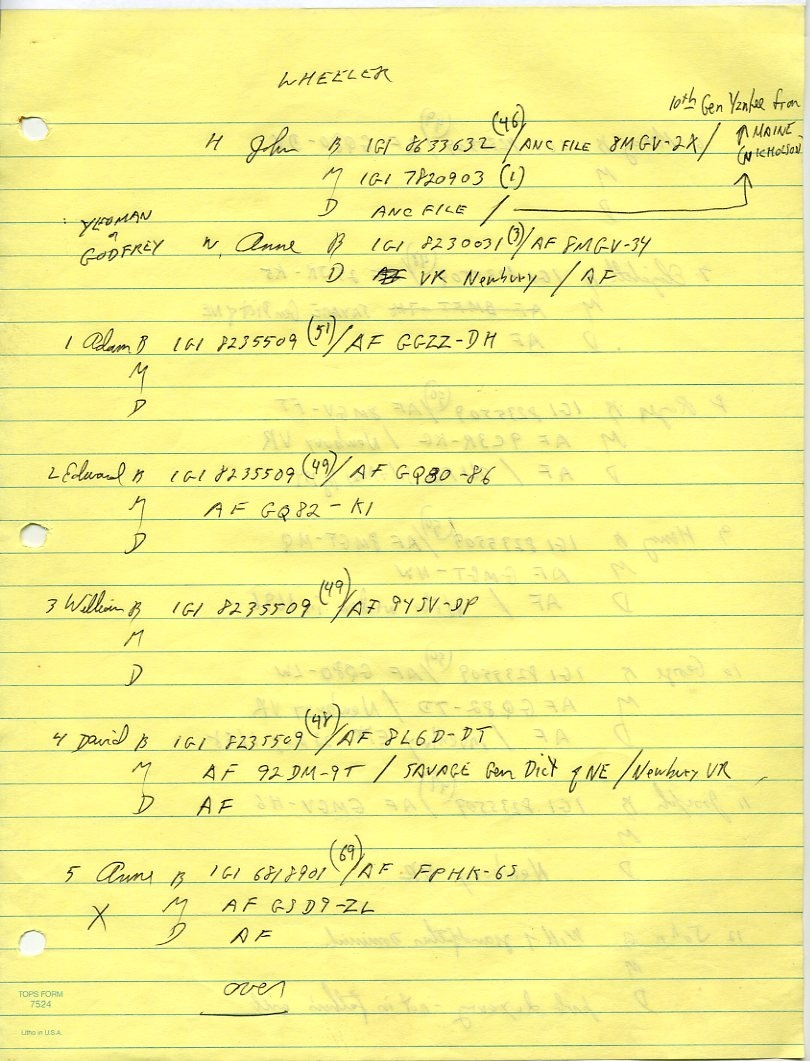 WHEELER
10th Gen Yankee from
↑ MAINE
(NICHOLSON)
H John B IGI 8633632 (46) / ANC FILE 8MGV-2X /
M IGI 7820903 (1)
D ANC FILE /
YEOMAN
GODFREY
W, Anne B IGI 8230031 (3) / AF 8MGV-34
D VR Newbury / AF
1 Adam B IGI 8235509 (51) / AF GGZZ-DH
M
D
2 Edward B IGI 8235509 (49) / AF GQ80-86
M AF GQ82-K1
D
3 William B IGI 8235509 (49) / AF 945V-DP
M
D
4 David B IGI 8235509 (48) / AF 8L6D-DT
M AF 92DM-9T / SAVAGE Gen Dict of NE / Newbury VR
D AF
5 Anne B IGI 6818901 (69) / AF FPHK-6S
X M AF GSD9-ZL
D AF
over
TOPS FORM
7524
Litho in U.S.A.